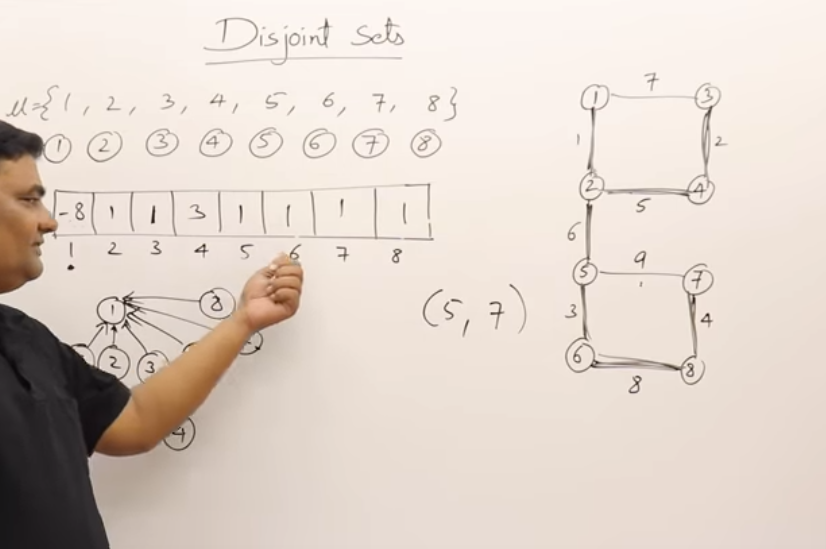 Disjoint Sets
𝒰={1, 2, 3, 4, 5, 6, 7, 8}
1 2 3 4 5 6 7 8
-8 1 1 3 1 1 1 1
1 2 3 4 5 6 7 8
1 8
2 3
4
(5, 7)
1 7 3
1 2
2 5 4
6
5 9 7
3 4
6 8 8